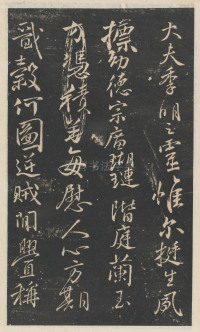 大夫季明之靈惟尔挺生夙
標幼德宗廟瑚璉階庭蘭玉
方憑積善每慰人心方期
戩穀何圖逆賊閒釁稱